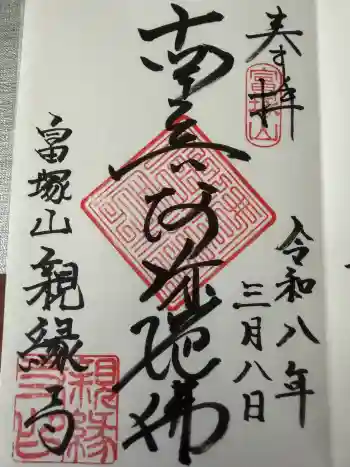 奉拝
富塚山
令和八年
三月八日
南無阿弥陀佛
富塚山親縁寺
親縁